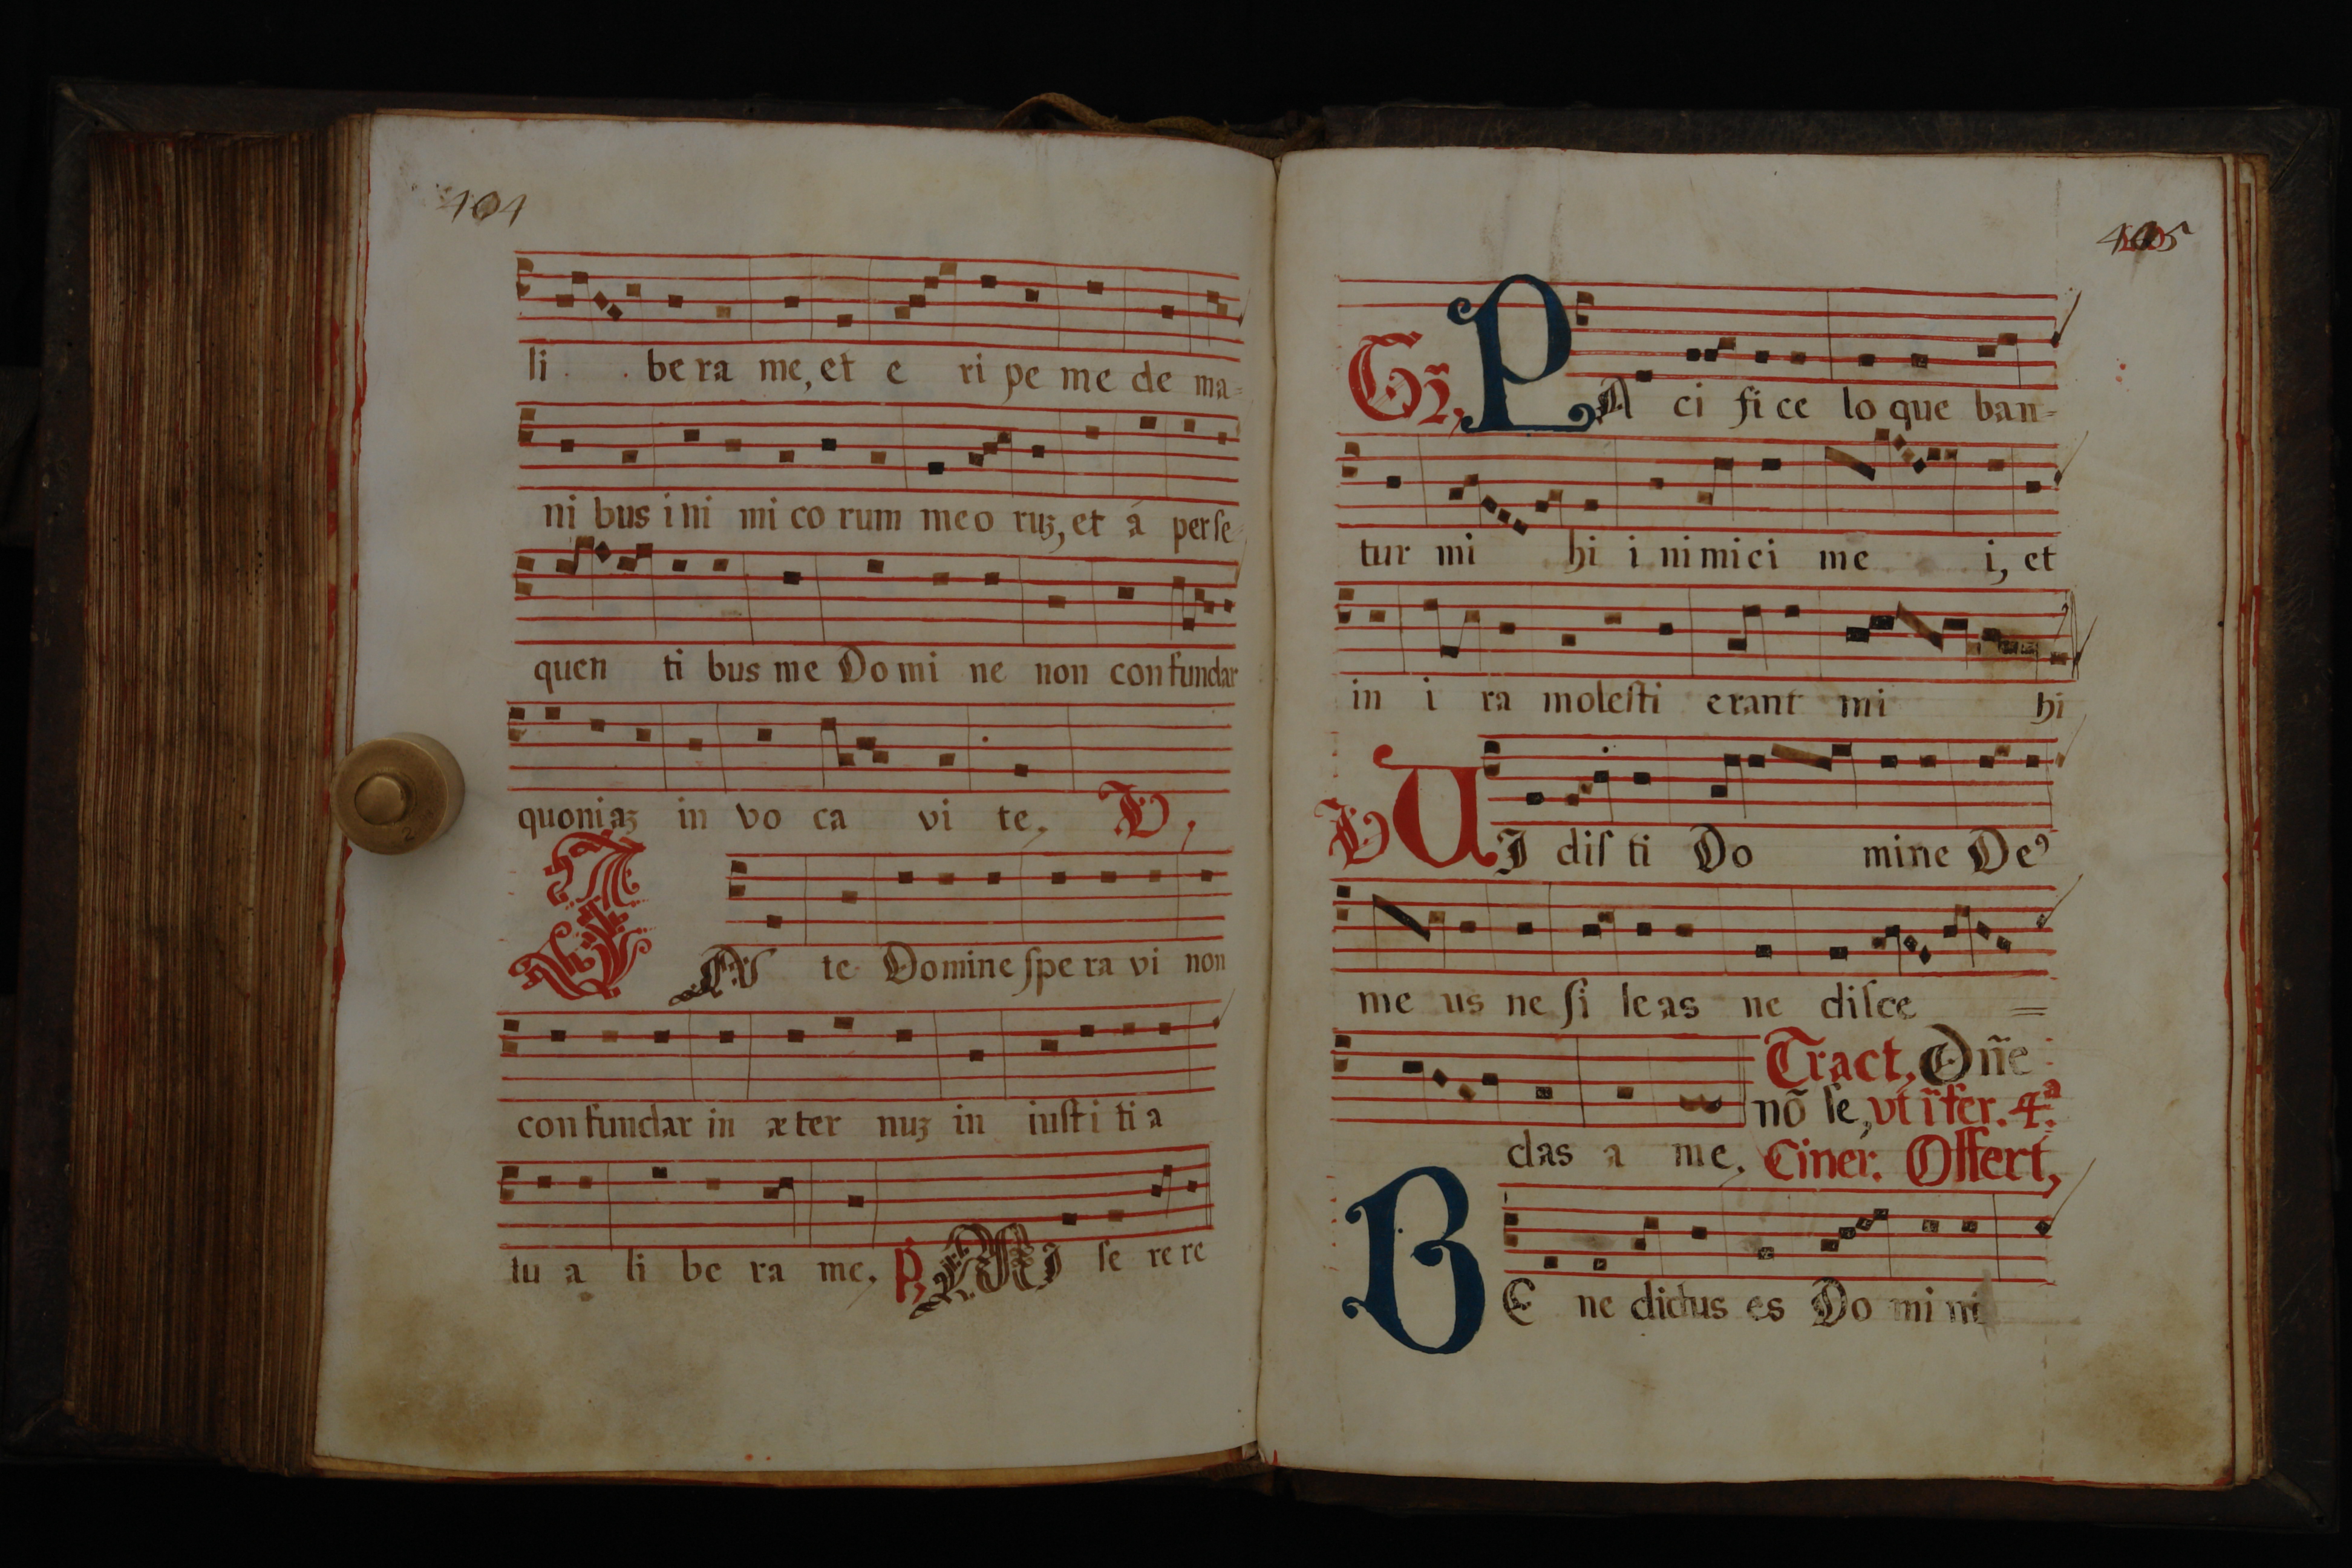 404
li bera me, et e ri pe me de ma=
ni bus i ni mi co rum meo ruʒ, et á perſe=
quen ti bus me Domi ne non confundar
quoniaʒ in vo ca vi te, V,
IN te Domine ſpe ra vi non
confundar in æter nuʒ in iuſti ti a
tu a li be ra me, P, MI ſe re re
405
Gr̃, PA ci fi ce lo que ban=
tur mi hi i nimici me i, et
in i ra moleſti erant mi hi
V UI diſ ti Do mine De⁹
me us ne ſi leas ne diſce =
Tract, Dñe
nõ ſe, vt ĩ fer. 4ª
das a me, Ciner. Offert,
BE ne dictus es Do mi ni